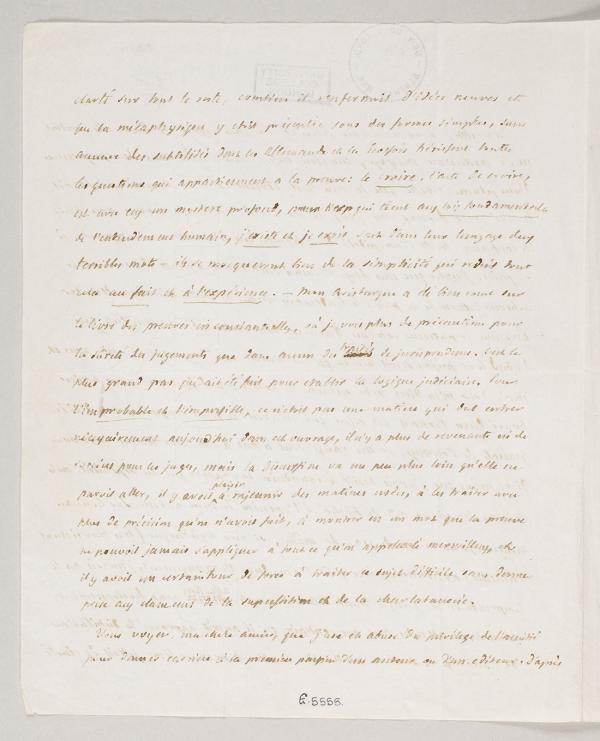 clarté sur tout le reste, combien il renfermoit d'idées neuves et
que la métaphysique y étoit présentée sous des formes simples, sans
aucune des subtilités dont les Allemands et les Ecossois hérissent toutes
les questions qui appartiennent à la preuve: le croire, l'acte de croire,
est avec eux un mystère profond, qui tient aux loix fondamentales
de l'entendement humain, j'existe et je crois sont dans leur langage deux
terribles mots — ils se moqueront bien de la simplicité qui réduit tout
cela au fait et à l'expérience. — Mon Aristarque a
le livre des preuves circonstantielles, où je vois plus de précautions pour
la sûreté des jugements que dans aucun des traités de jurisprudence. C'est le
plus grand pas qui ait été fait pour établir la logique judiciaire. Pour
l'improbable et l'impossible, ce n'étoit pas une matière qui dut entrer
nécessairement aujourd'hui dans cet ouvrage, il n'y a plus de revenants ni de
sorciers pour les juges, mais la discussion va un peu plus loin qu'elle ne
paroit aller, il y avoit plaisir à rajeunir des matières usées, à les traiter avec
plus de précision qu'on n'avoit fait, à montrer en un mot que la preuve
ne pouvoit jamais s'appliquer à tout ce qu'on appelle le merveilleux, et
il y avoit un certain tour de force à traiter ce sujet difficile sans donner
prise aux clameurs de la superstition et de la charlatanerie.
Vous voyez, ma chère amie, que j'use et abuse du privilège de l'amitié
pour donner carrière à la première d'un auteur ou d'un editeur. D'après
E.5555.